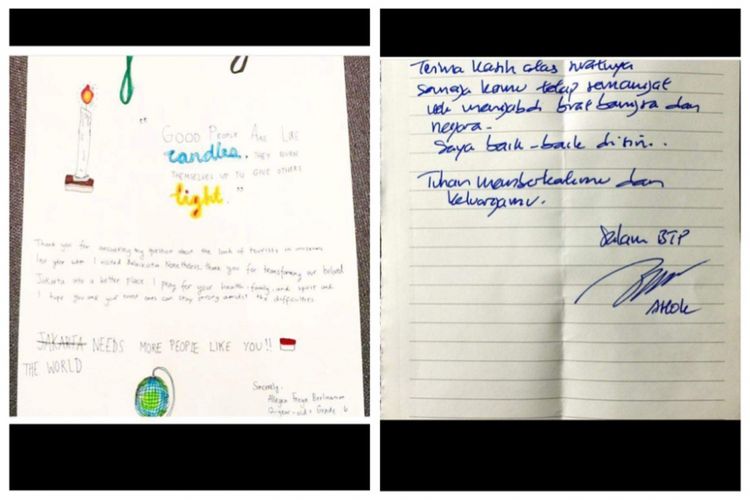 "
GOOD PEOPLE ARE LIKE
candles, THEY BURN
THEMSELVES UP TO GIVE OTHERS
light."
Thank you for answering my question about the lack of tourists in museums
last year when I visited Balaikota. Nonetheless, thank you for transforming our beloved
Jakarta into a better place. I pray for your health, family, and spirit and
I hope you and your loved ones can stay strong amidst the difficulties
JAKARTA NEEDS MORE PEOPLE LIKE YOU!!
THE WORLD
Sincerely,
Freya
12-year-old, Grade 6
Terima kasih atas suratnya
semoga kamu tetap semangat
utk mengabdi buat bangsa dan
negara.
Saya baik-baik disini..
Tuhan memberkatimu dan
keluargamu.
Salam BTP
AHOK